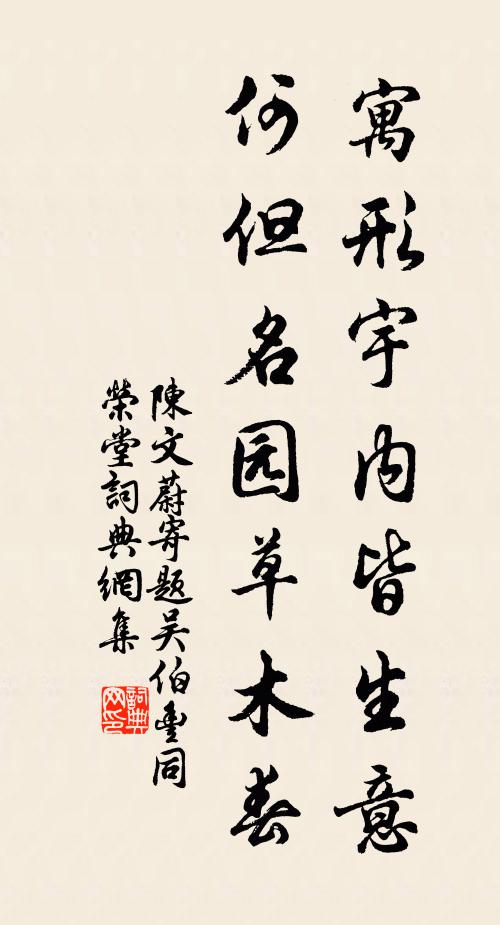 寓形宇内皆生意
何但名园草木春
陳文蔚寄題吴伯豊同
榮堂詞典網集
詞典
网印